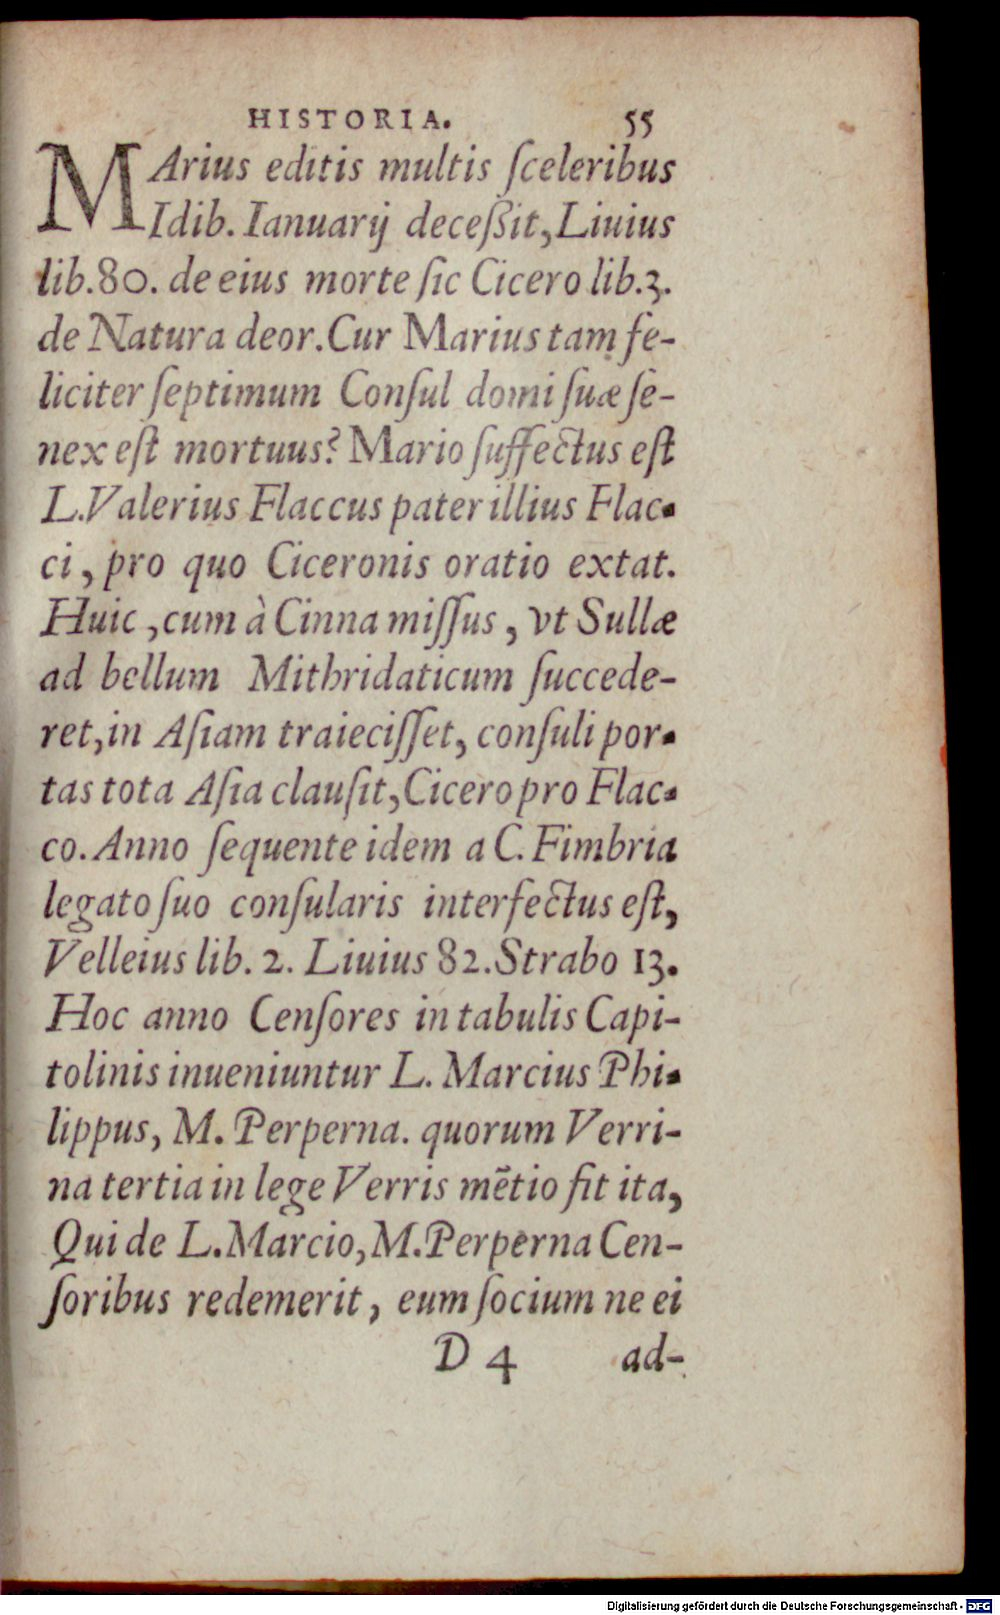 HISTORIA. 55
MArius editis multis ſceleribus
Idib. Ianuarij deceßit, Liuius
lib. 80. de eius morte ſic Cicero lib. 3.
de Natura deor. Cur Marius tam fe-
liciter ſeptimum Conſul domi ſuæ ſe-
nex eſt mortuus? Mario ſuffectus eſt
L. Valerius Flaccus pater illius Flac-
ci, pro quo Ciceronis oratio extat.
Huic, cum à Cinna miſſus, vt Sullæ
ad bellum Mithridaticum ſuccede-
ret, in Aſiam traieciſſet, conſuli por-
tas tota Aſia clauſit, Cicero pro Flac-
co. Anno ſequente idem a C. Fimbria
legato ſuo conſularis interfectus eſt,
Velleius lib. 2. Liuius 82. Strabo 13.
Hoc anno Cenſores in tabulis Capi-
tolinis inueniuntur L. Marcius Phi-
lippus, M. Perperna. quorum Verri-
na tertia in lege Verris mētio fit ita,
Qui de L. Marcio, M. Perperna Cen-
ſoribus redemerit, eum ſocium ne ei
D 4 ad-
Digitalisierung gefördert durch die Deutsche Forschungsgemeinschaft - DFG